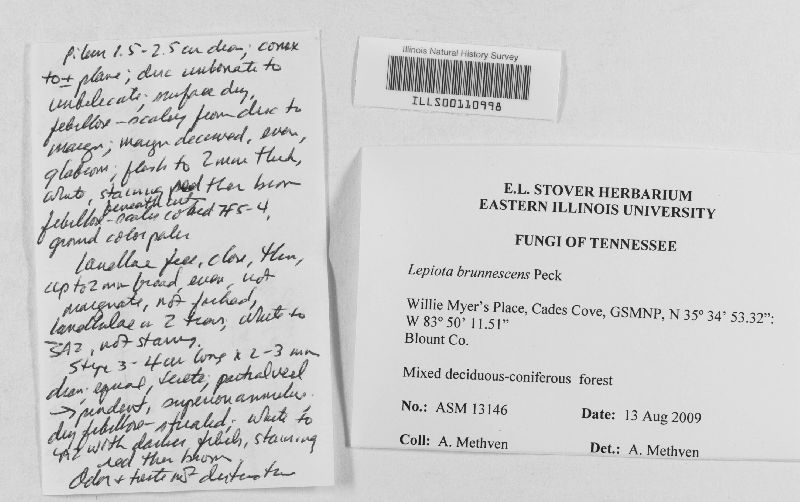 Pileus 1.5-2.5 cm diam; convex
to ± plane; disc umbonate to
umbilicate; surface dry,
fibrillose-scaley from disc to
margin; margin decurved, even,
glabrous; flesh to 2 mm thick,
white, staining red then brown
beneath cut
fibrillose-scales colored 7F5-4,
ground color paler
lamellae free, close, thin,
up to 2 mm broad, even, not
marginate, not forked,
lamellulae in 2 tiers; white to
5A2, not staining.
Stipe 3-4 cm long x 2-3 mm
diam; equal, terete; partial veil
→ pendent, superior annulus.
dry fibrillose-striate; white to
4A2 with darker fibrils, staining
red then brown.
Odor + taste not distinctive
Illinois Natural History Survey
ILLS00110998
E.L. STOVER HERBARIUM
EASTERN ILLINOIS UNIVERSITY
FUNGI OF TENNESSEE
Lepiota brunnescens Peck
Willie Myer's Place, Cades Cove, GSMNP, N 35º 34' 53.32":
W 83º 50' 11.51"
Blount Co.
Mixed deciduous-coniferous forest
No.: ASM 13146 Date: 13 Aug 2009
Coll: A. Methven Det.: A. Methven